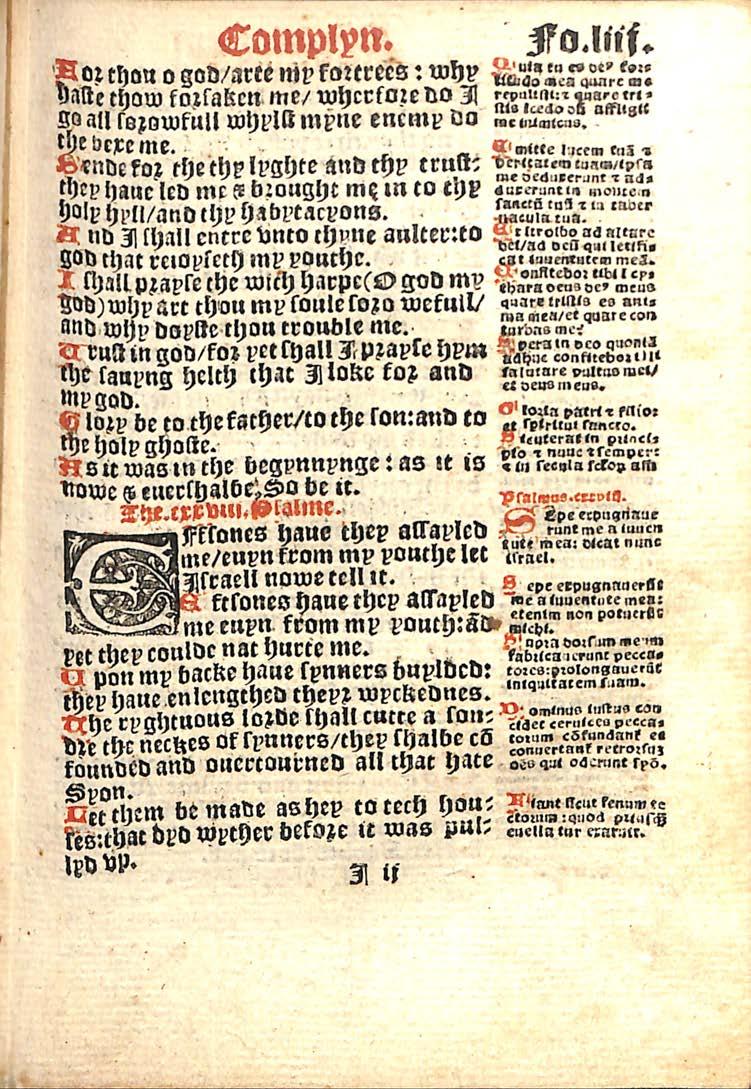 Complyn.
Fo.liii.
For thou o god/arte my fortrees : why
haste thow forsaken me/ wherfore do I
go all sorowfull whylst myne enemy do
the vexe me.
Sende for the thy lyghte and thy trust:
they haue led me & brought me in to thy
holy hyll/and thy habytacyons.
And I shall entre vnto thyne aulter:to
god that reioyseth my youthe.
I shall prayse the with harpe(O god my
god)why art thou my soule soro wefull/
and why doyste thou trouble me.
Trust in god/for yet shall I prayse hym
the sauyng helth that I loke for and
my god.
Glory be to the father/to the son:and to
the holy ghoste.
As it was in the begynnynge : as it is
nowe & euershalbe, So be it.
The.cxxviii.Psalme.
Eftsones haue they assayled
me/euyn from my youthe let
Israell nowe tell it.
Eftsones haue they assayled
me euyn from my youth:ād
yet they coulde nat hurte me.
Upon my backe haue synners buylded:
they haue enlengthed theyr wyckednes.
The ryghtuous lorde shall cutte a son:
dre the neckes of synners/they shalbe cō
founded and ouertourned all that hate
Syon.
Let them be made as hey to tech hou:
ses:that dyd wyther before it was pul:
lyd vp.
I ii
Quia tu es de' fors
titudo mea quare me
repulisti: & quare tri:
stis icedo dū affligit
me inimicus.
Emitte lucem tuā &
veritatem tuam/ipsa
me deduxerunt & ads
duxerunt in montem
sanctū tuū & in taber
nacula tua.
Et itroibo ad altare
dei/ad deū qui letifis
cat iuuentutem meā.
Confitebor tibi i cys
thara deus de' meus
quare tristis es anis
ma mea/et quare con
turbas me:
Spera in deo quoniā
adhuc confitebor illi
salutare vultus mei/
et deus meus.
Gloria patri & filio:
et spiritui sancto.
Sicuterat in princis
pio & nunc & semper:
& in secula sclor amē
Psalmus.cxxviii.
Sepe expugnaue
runt me a iuuen
tute mea: dicat nunc
israel.
Sepe expugnauerūt
me a iuuentute mea:
etenim non potuerūt
michi.
Supra dorsum meum
fabricauerunt peccas
tores:prolongauerūt
iniquitatem suam.
Dominus iustus con
cidet ceruices peccas
torum cōfundant et
conuertant retrorsuz
oēs qui oderunt syō.
Fiant sicut fenum te
ctorum :quod priusq̄
euella tur exaruit.